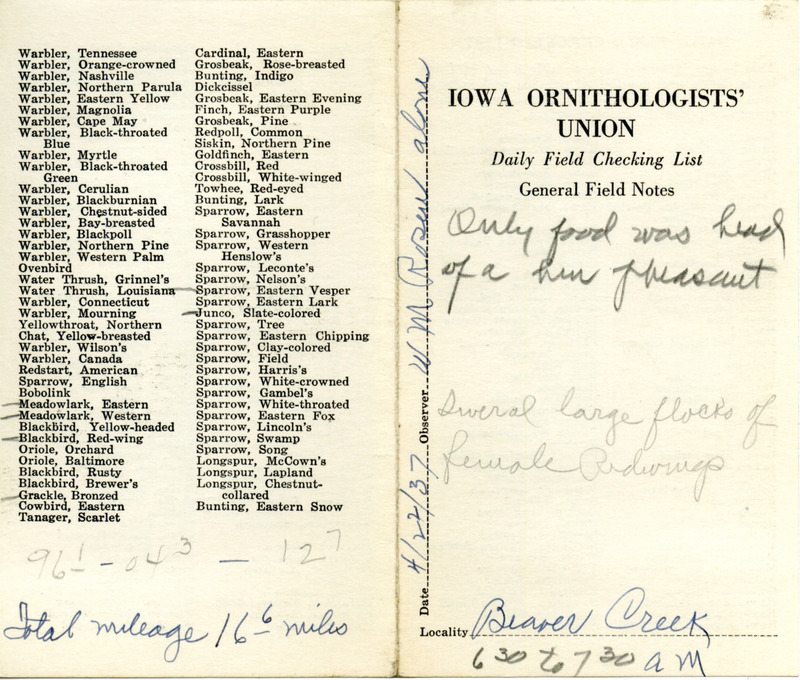 Warbler, Tennessee
Warbler, Orange-crowned
Warbler, Nashville
Warbler, Northern Parula
Warbler, Eastern Yellow
Warbler, Magnolia
Warbler, Cape May
Warbler, Black-throated
Blue
Warbler, Myrtle
Warbler, Black-throated
Green
Warbler, Cerulian
Warbler, Blackburnian
Warbler, Chestnut-sided
Warbler, Bay-breasted
Warbler, Blackpoll
Warbler, Northern Pine
Warbler, Western Palm
Ovenbird
Water Thrush, Grinnel's
Water Thrush, Louisiana
Warbler, Connecticut
Warbler, Mourning
Yellowthroat, Northern
Chat, Yellow-breasted
Warbler, Wilson's
Warbler, Canada
Redstart, American
Sparrow, English
Bobolink
Meadowlark, Eastern
Meadowlark, Western
Blackbird, Yellow-headed
Blackbird, Red-wing
Oriole, Orchard
Oriole, Baltimore
Blackbird, Rusty
Blackbird, Brewer's
Grackle, Bronzed
Cowbird, Eastern
Tanager, Scarlet
Cardinal, Eastern
Grosbeak, Rose-breasted
Bunting, Indigo
Dickcissel
Grosbeak, Eastern Evening
Finch, Eastern Purple
Grosbeak, Pine
Redpoll, Common
Siskin, Northern Pine
Goldfinch, Eastern
Crossbill, Red
Crossbill, White-winged
Towhee, Red-eyed
Bunting, Lark
Sparrow, Eastern
Savannah
Sparrow, Grasshopper
Sparrow, Western
Henslow's
Sparrow, Leconte's
Sparrow, Nelson's
Sparrow, Eastern Vesper
Sparrow, Eastern Lark
Junco, Slate-colored
Sparrow, Tree
Sparrow, Eastern Chipping
Sparrow, Clay-colored
Sparrow, Field
Sparrow, Harris's
Sparrow, White-crowned
Sparrow, Gambel's
Sparrow, White-throated
Sparrow, Eastern Fox
Sparrow, Lincoln's
Sparrow, Swamp
Sparrow, Song
Longspur, McCown's
Longspur, Lapland
Longspur, Chestnut-
collared
Bunting, Eastern Snow
96¹ - 04³ - 12⁷
Total mileage 16⁶ miles
Date 4/22/37 Observer W M Rosen alone
IOWA ORNITHOLOGISTS'
UNION
Daily Field Checking List
General Field Notes
Only food was head
of a hen pheasant
Several large flocks of
female Redwings
Locality Beaver Creek
6 30 to 7 30 AM